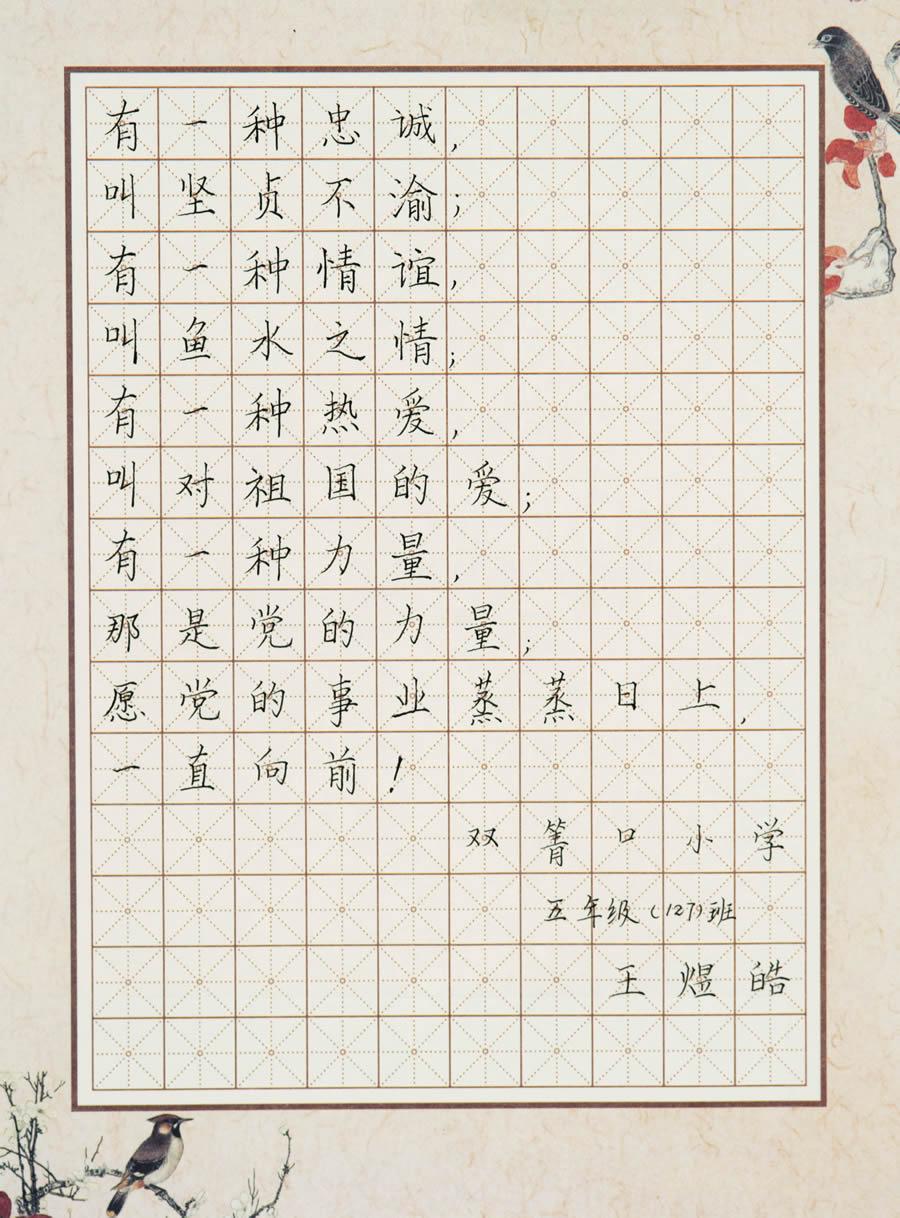 有一种忠诚，
叫坚贞不渝；
有一种情谊，
叫鱼水之情；
有一种热爱，
叫对祖国的爱；
有一种力量，
那是党的力量；
愿党的事业蒸蒸日上，
一直向前！
双箐口小学
五年级（127）班
王煜皓